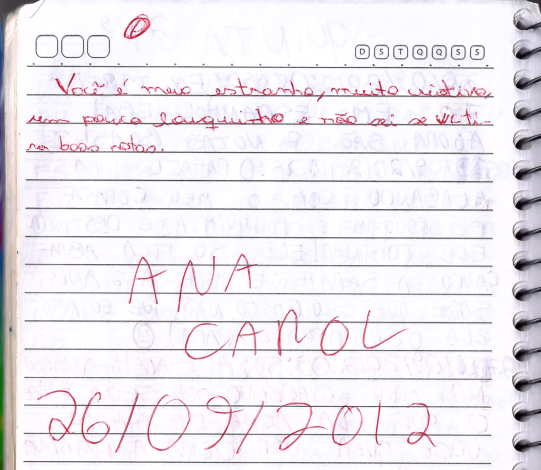 D S T Q Q S S
Você é meio estranho, muito criativo,
um pouco louquinho e não sei se vc ti-
ra boas notas.
ANA
CAROL
26/09/2012